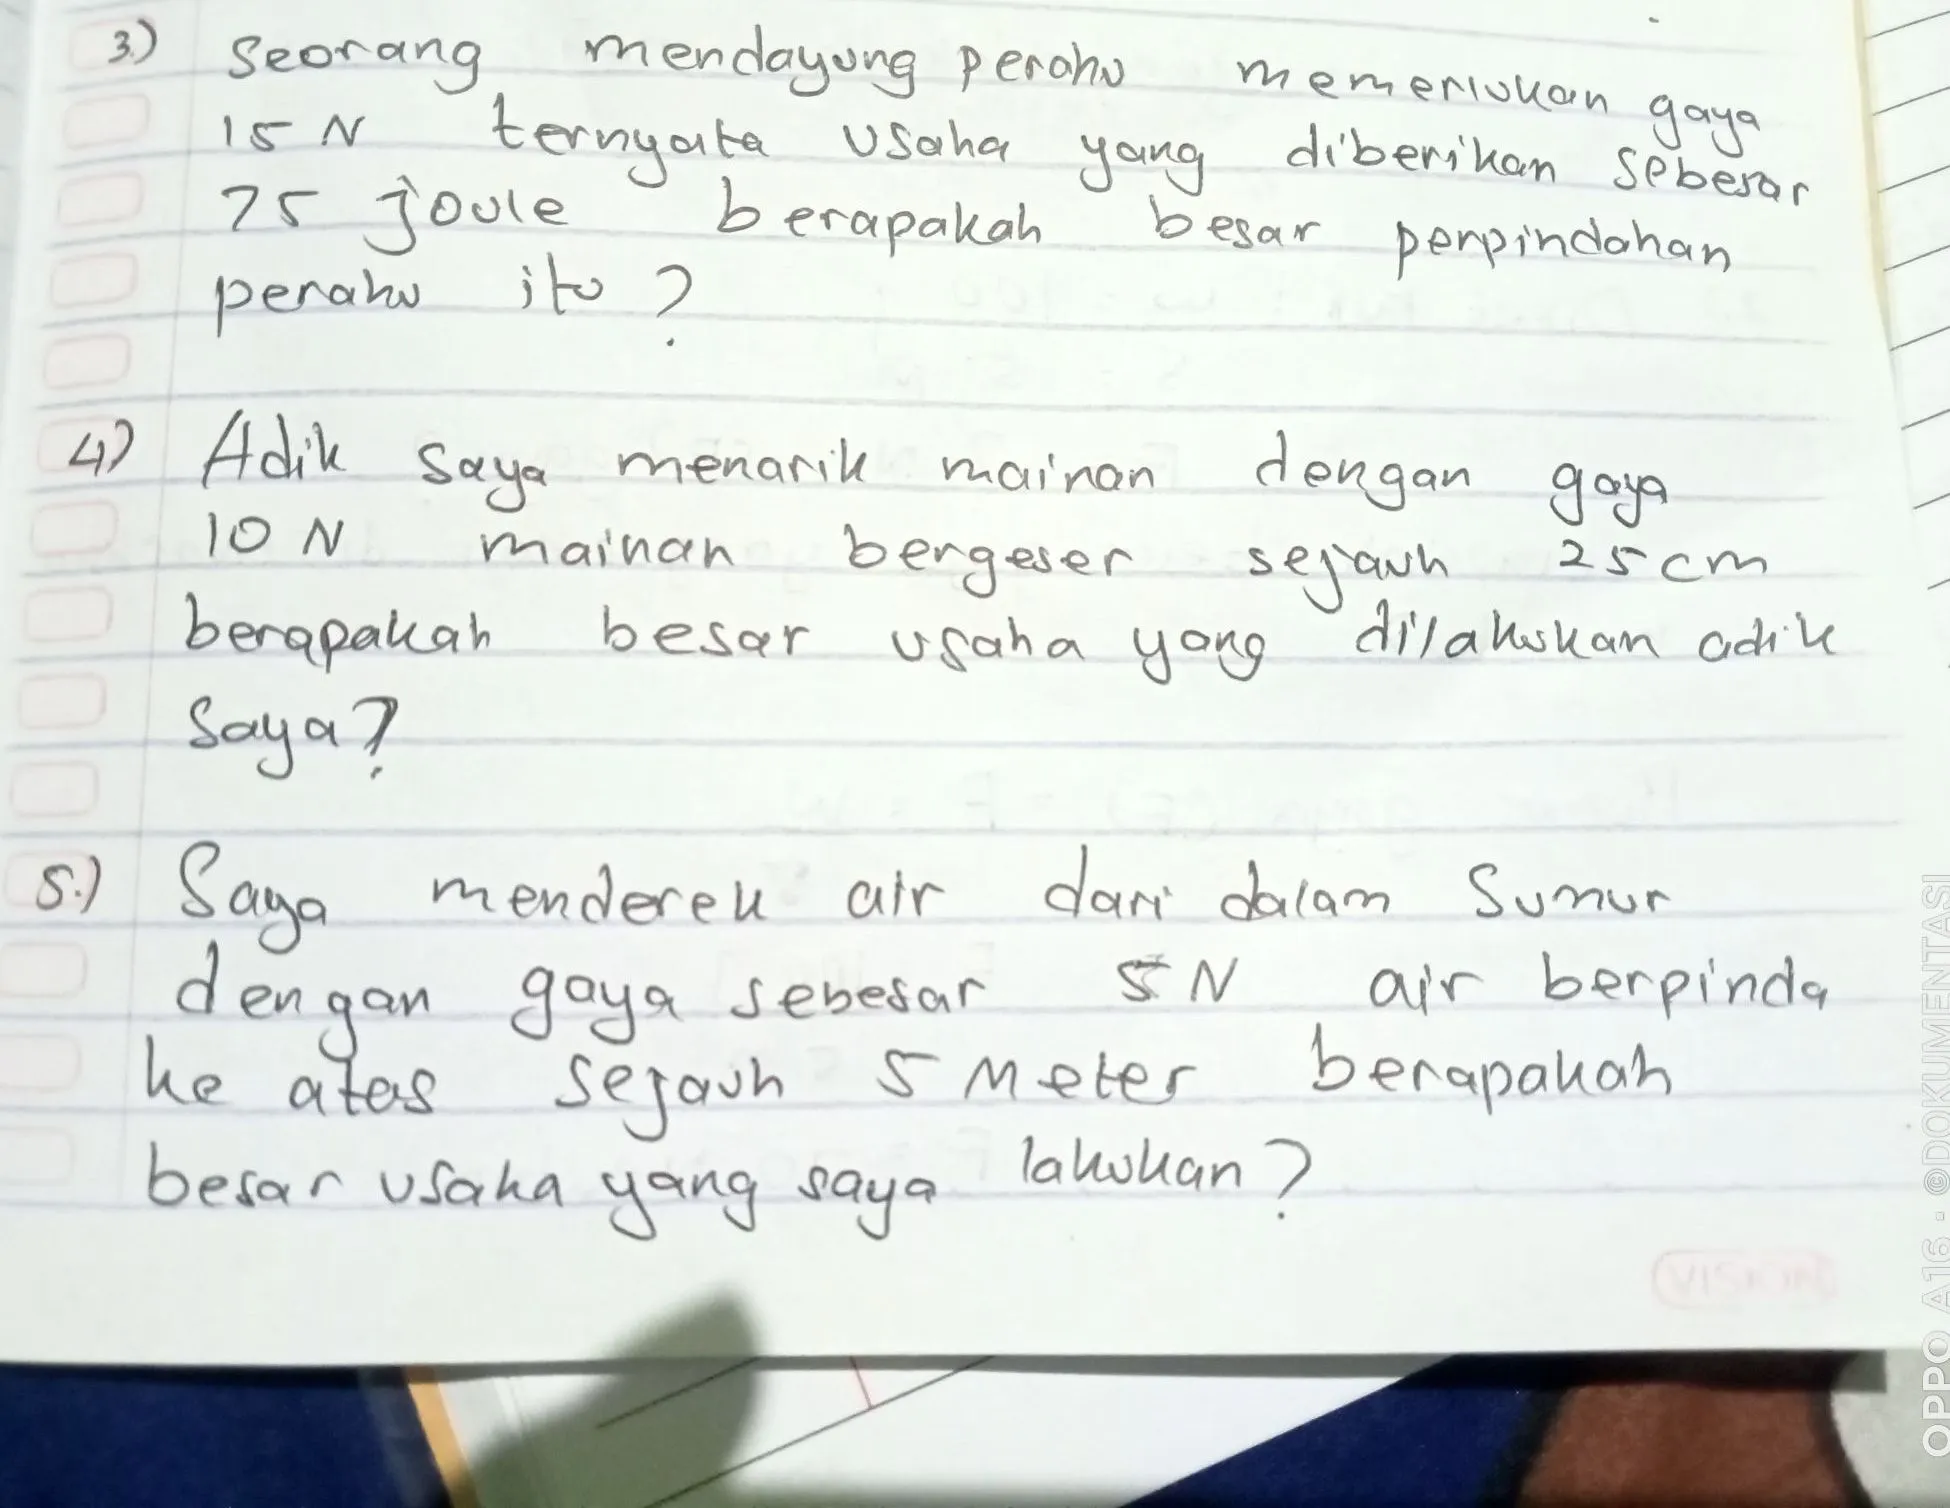 3.) Seorang mendayung perahu memerlukan gaya
15 N ternyata usaha yang diberikan sebesar
75 joule berapakah besar perpindahan
perahu itu?
4) Adik saya menarik mainan dengan gaya
10 N mainan bergeser sejauh 25 cm
berapakah besar usaha yang dilakukan adik
saya?
5.) Saya menderek air dari dalam sumur
dengan gaya sebesar 5 N air berpinda
ke atas sejauh 5 Meter berapakah
besar usaha yang saya lakukan?
VISION
OPPO A16 · ©DOKUMENTASI